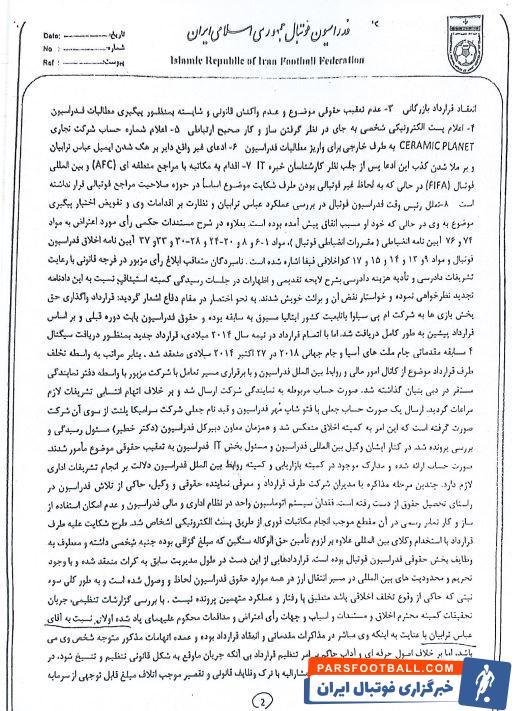 فدراسیون فوتبال جمهوری اسلامی ایران
Islamic Republic of Iran Football Federation
Date: تاریخ:
No : شماره:
Ref : پیوست:
انعقاد قرارداد بازرگانی ۳- عدم تعقیب حقوقی موضوع و عدم واکنش قانونی و شایسته بمنظور پیگیری مطالبات فدراسیون
۴- اعلام پست الکترونیکی شخصی به جای در نظر گرفتن ساز و کار صحیح ارتباطی ۵- اعلام شماره حساب شرکت تجاری
CERAMIC PLANET به طرف خارجی برای واریز مطالبات فدراسیون ۶- ادعای غیر واقع دایر بر هک شدن ایمیل عباس ترابیان
و بر ملا شدن کذب این ادعا پس از جلب نظر کارشناسان خبره IT ۷- اقدام به مکاتبه با مراجع منطقه ای (AFC) و بین المللی
فوتبال (FIFA) در حالی که به لحاظ غیر فوتبالی بودن طرف شکایت موضوع اساساً در حوزه صلاحیت مراجع فوتبالی قرار نداشته
است ۸- تعلل رئیس وقت فدراسیون فوتبال در بررسی عملکرد عباس ترابیان و نظارت بر اقدامات وی و تفویض اختیار پیگیری
موضوع به وی در حالی که خود او مسبب اتفاق پیش آمده بوده است. بعلاوه در شرح مستندات حکمی رأی مورد اعتراض به مواد
۷۴ و ۷۶ آیین نامه انضباطی ( مقررات انضباطی فوتبال )، مواد ۱-۶ و ۸ و ۲۰-۲۴ و ۲۸-۳۰ و ۳۳ و ۳۷ آیین نامه اخلاق فدراسیون
فوتبال و مواد ۹ و ۱۳ و ۱۴ و ۱۵ و ۱۷ کد اخلاقی فیفا اشاره شده است. نامبردگان متعاقب ابلاغ رأی مزبور در فرجه قانونی با رعایت
تشریفات دادرسی و تأدیه هزینه دادرسی بشرح لایحه تقدیمی و اظهارات در جلسات رسیدگی کمیته استیناف نسبت به این دادنامه
تجدید نظرخواهی نموده و خواستار نقض آن و برائت خویش شدند. به نحو اختصار در مقام دفاع اشعار گردید: قرارداد واگذاری حق
پخش بازی ها به شرکت ام پی سیلوا باتابعیت کشور ایتالیا مسبوق به سابقه بوده و حقوق فدراسیون بابت دوره قبلی و بر اساس
قرارداد پیشین به طور کامل دریافت شد. اما با اتمام قرارداد در نیمه سال ۲۰۱۴ میلادی، قرارداد جدید بمنظور دریافت سیگنال
۴ مسابقه مقدماتی جام ملت های آسیا و جام جهانی ۲۰۱۸ در ۲۷ اکتبر ۲۰۱۴ میلادی منعقد شد. بنابر مراتب به واسطه تخلف
طرف قرارداد موضوع از کانال امور مالی و روابط بین الملل فدراسیون و با برقراری مسیر تعامل با شرکت مزبور با واسطه دفتر نمایندگی
مستقر در دبی بنیان گذاشته شد. صورت حساب مربوطه به نمایندگی شرکت ارسال شد و بر خلاف اتهام انتسابی تشریفات لازم
مراعات گردید. ارسال یک صورت حساب جعلی با فتو شاپ مُهر فدراسیون و قید نام جعلی شرکت سرامیکا پلنت از سوی آن شرکت
صورت گرفته است که این امر به کمیته اخلاق منعکس شد و همزمان معاون دبیرکل فدراسیون (دکتر خطیر) مسئول رسیدگی و
بررسی پرونده شد. در کنار ایشان وکیل بین المللی فدراسیون و مسئول بخش IT فدراسیون به تعقیب حقوقی موضوع مأمور شدند.
صورت حساب ارائه شده و مدارک موجود در کمیته بازاریابی و کمیته روابط بین الملل فدراسیون دلالت بر انجام تشریفات اداری
لازم دارد. چندین مرحله مذاکره با مدیران شرکت طرف قرارداد و معرفی نماینده حقوقی و وکیل، حاکی از تلاش فدراسیون در
راستای تحصیل حقوق از دست رفته است. فقدان سیستم اتوماسیون واحد در نظام اداری و مالی فدراسیون و عدم امکان استفاده از
ساز و کار نمابر رسمی در آن مقطع موجب انجام مکاتبات فوری از طریق پست الکترونیکی اشخاص شد. طرح شکایت علیه طرف
قرارداد با استخدام وکلای بین المللی علاوه بر لزوم تأمین حق الوکاله سنگین که مبلغ گزافی بوده جنبه شخصی داشته و معطوف به
وظایف بخش حقوقی فدراسیون فوتبال بوده است. قراردادهایی از این دست در طول مدیریت سابق به کرات منعقد شده و با وجود
تحریم و محدودیت های بین المللی در مسیر انتقال ارز در همه موارد حقوق فدراسیون لحاظ و وصول شده است و به طور کلی سوء
نیتی که حاکی از وقوع تخلف اخلاقی باشد منطبق با رفتار و عملکرد متهمین پرونده نیست . با بررسی گزارشات تنظیمی، جریان
تحقیقات کمیته محترم اخلاق و مستندات و اسباب و جهات رأی اعتراض و مدافعات محکوم علیهمای یاد شده اولاً، نسبت به آقای
عباس ترابیان با عنایت به اینکه وی مباشر در مذاکرات مقدماتی و انعقاد قرارداد بوده و عمده اتهامات مذکور متوجه شخص وی می
باشد، اما بر خلاف اصول حرفه ای و آداب حاکم بر امر تنظیم قرارداد بی آنکه جریان ماوقع به شکل قانونی تنظیم و تنسیخ شود، در
مشارالیه با ترک وظایف قانونی و تقصیر موجب اتلاف مبلغ قابل توجهی از سرمایه
2
PARSFOOTBALL.COM
خبرگزاری فوتبال ایران